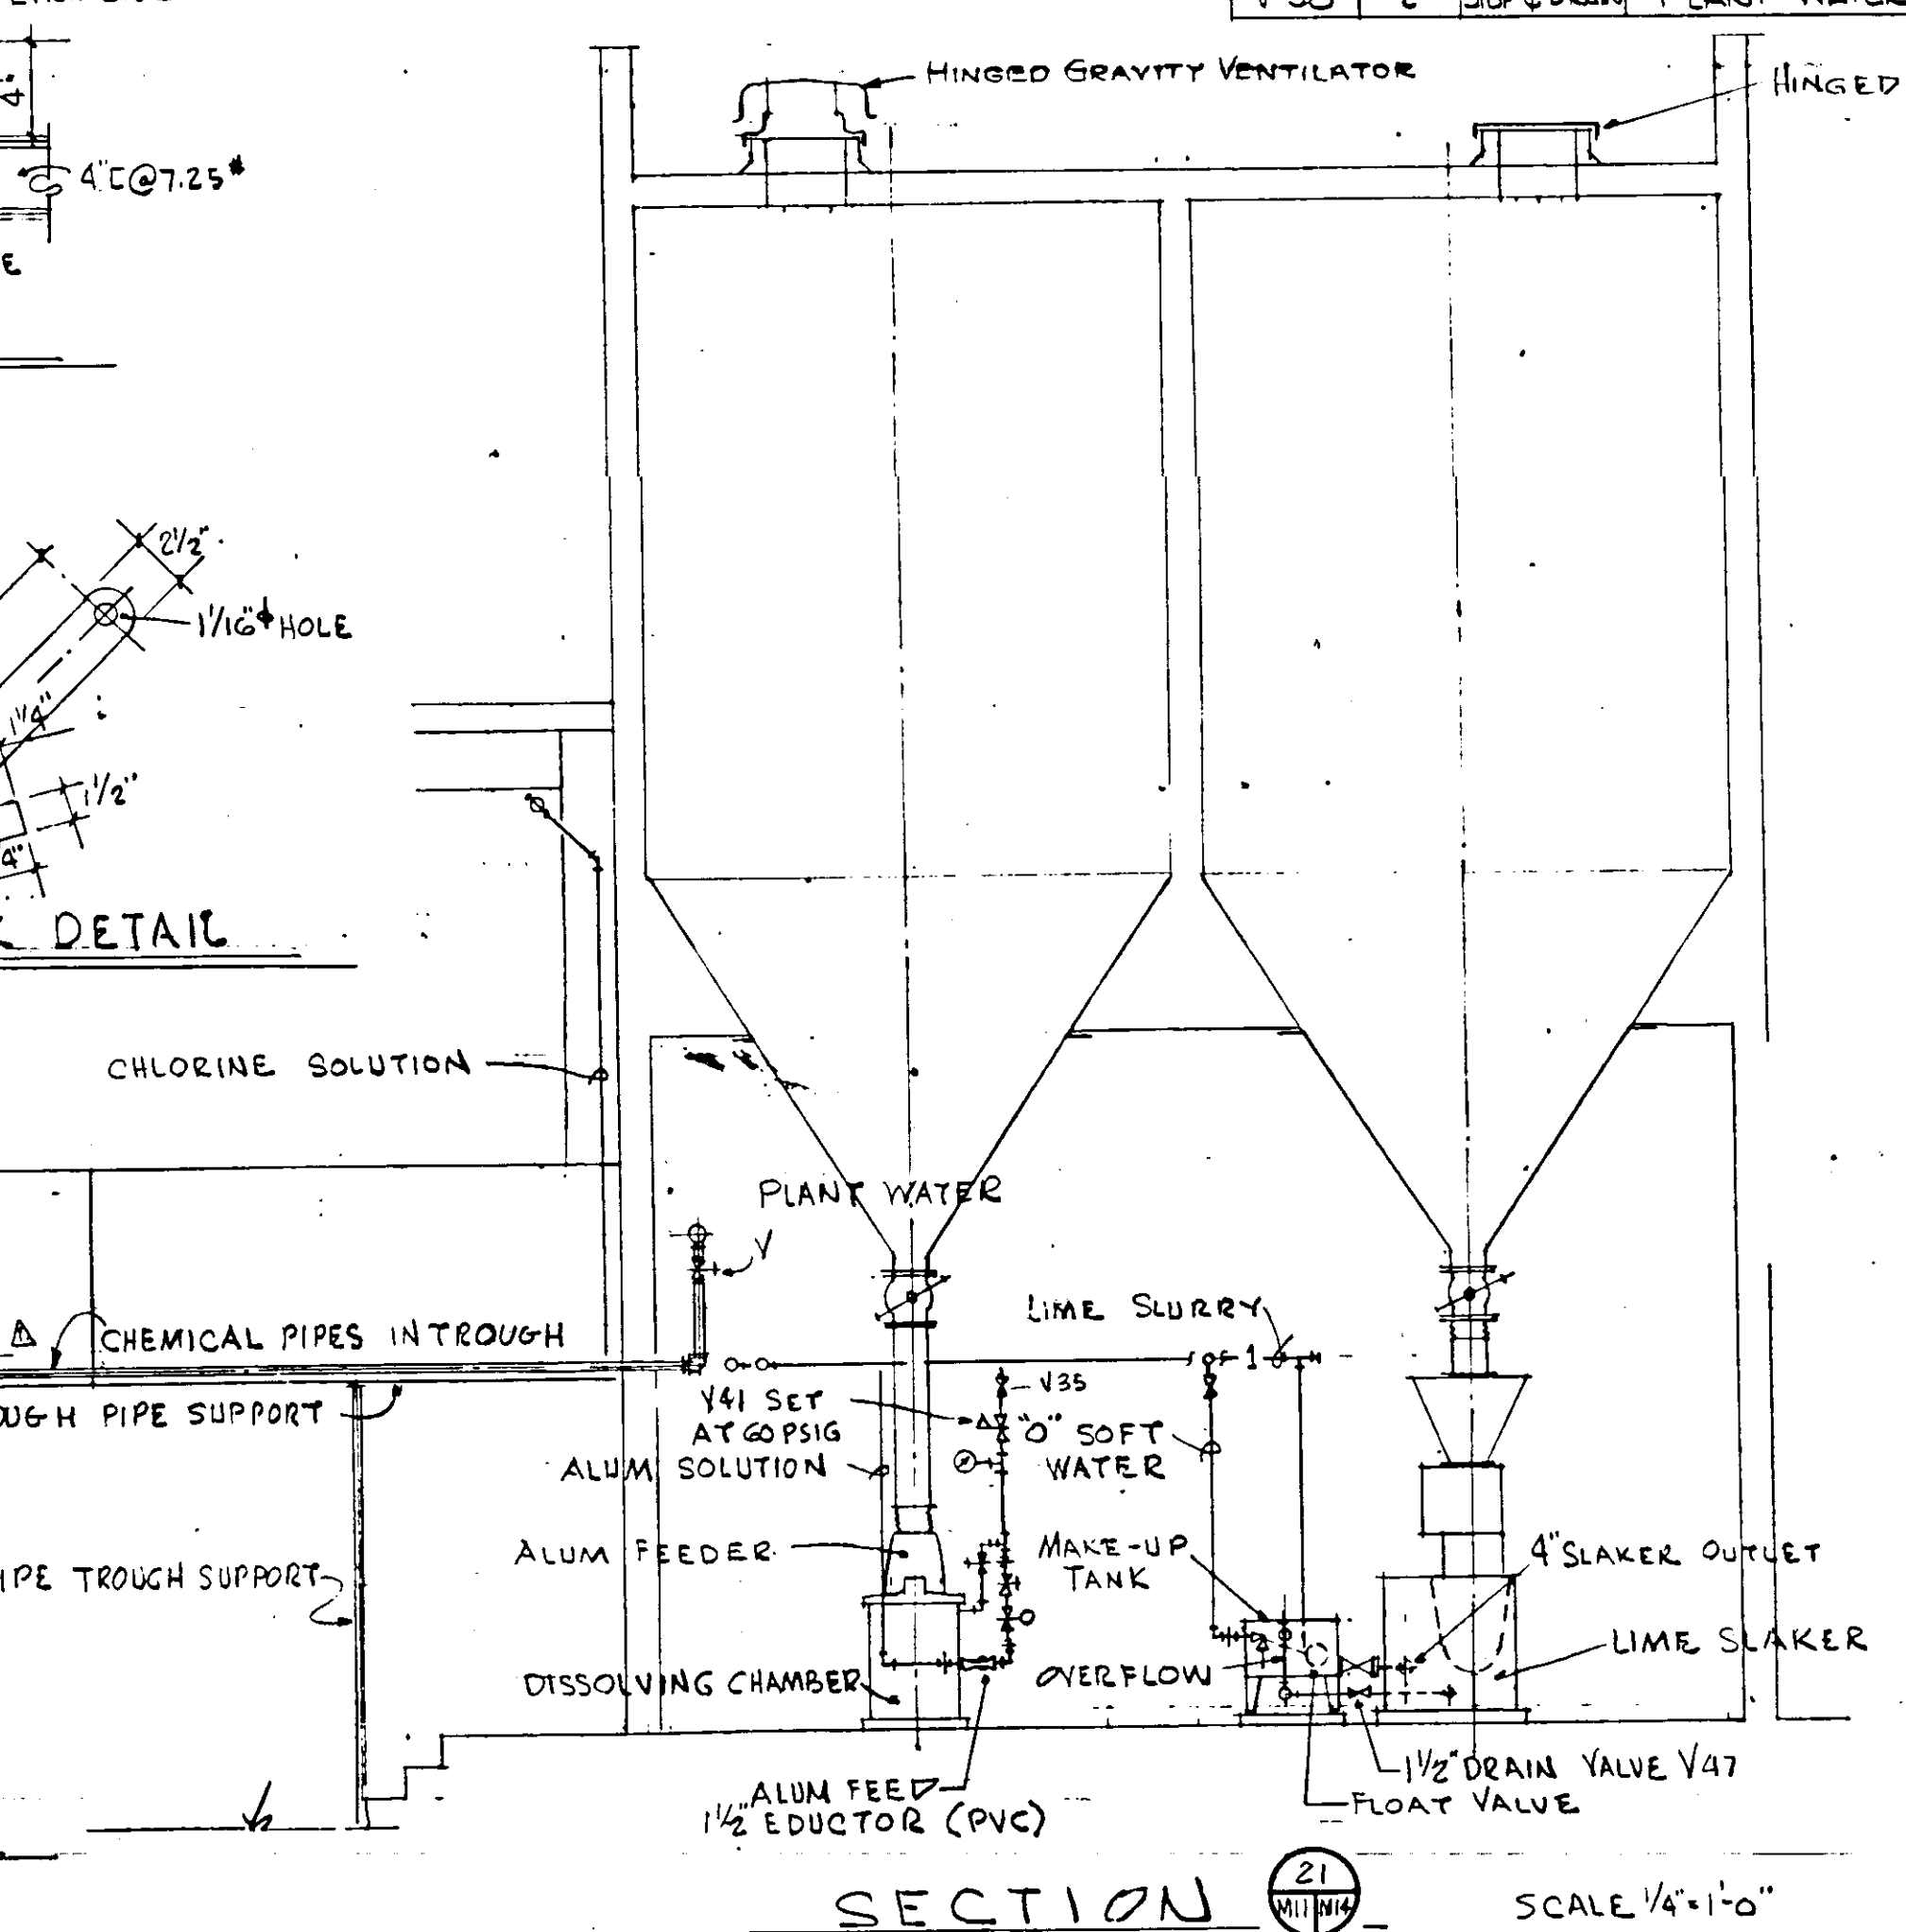 PLANT WATER
HINGED GRAVITY VENTILATOR
HINGED
4"
4"[@7.25#
E
2 1/2"
1 1/16"ϕ HOLE
1 1/4"
1 1/2"
4"
DETAIL
CHLORINE SOLUTION
PLANT WATER
V
LIME SLURRY
CHEMICAL PIPES IN TROUGH
1
V35
V41 SET
AT 60 PSIG
"O" SOFT
WATER
UGH PIPE SUPPORT
ALUM SOLUTION
ALUM FEEDER
MAKE-UP
TANK
4" SLAKER OUTLET
IPE TROUGH SUPPORT
LIME SLAKER
DISSOLVING CHAMBER
OVERFLOW
1 1/2" DRAIN VALUE V47
FLOAT VALUE
ALUM FEED
1 1/2" EDUCTOR (PVC)
SECTION
21
M11 M14
SCALE 1/4"=1'-0"